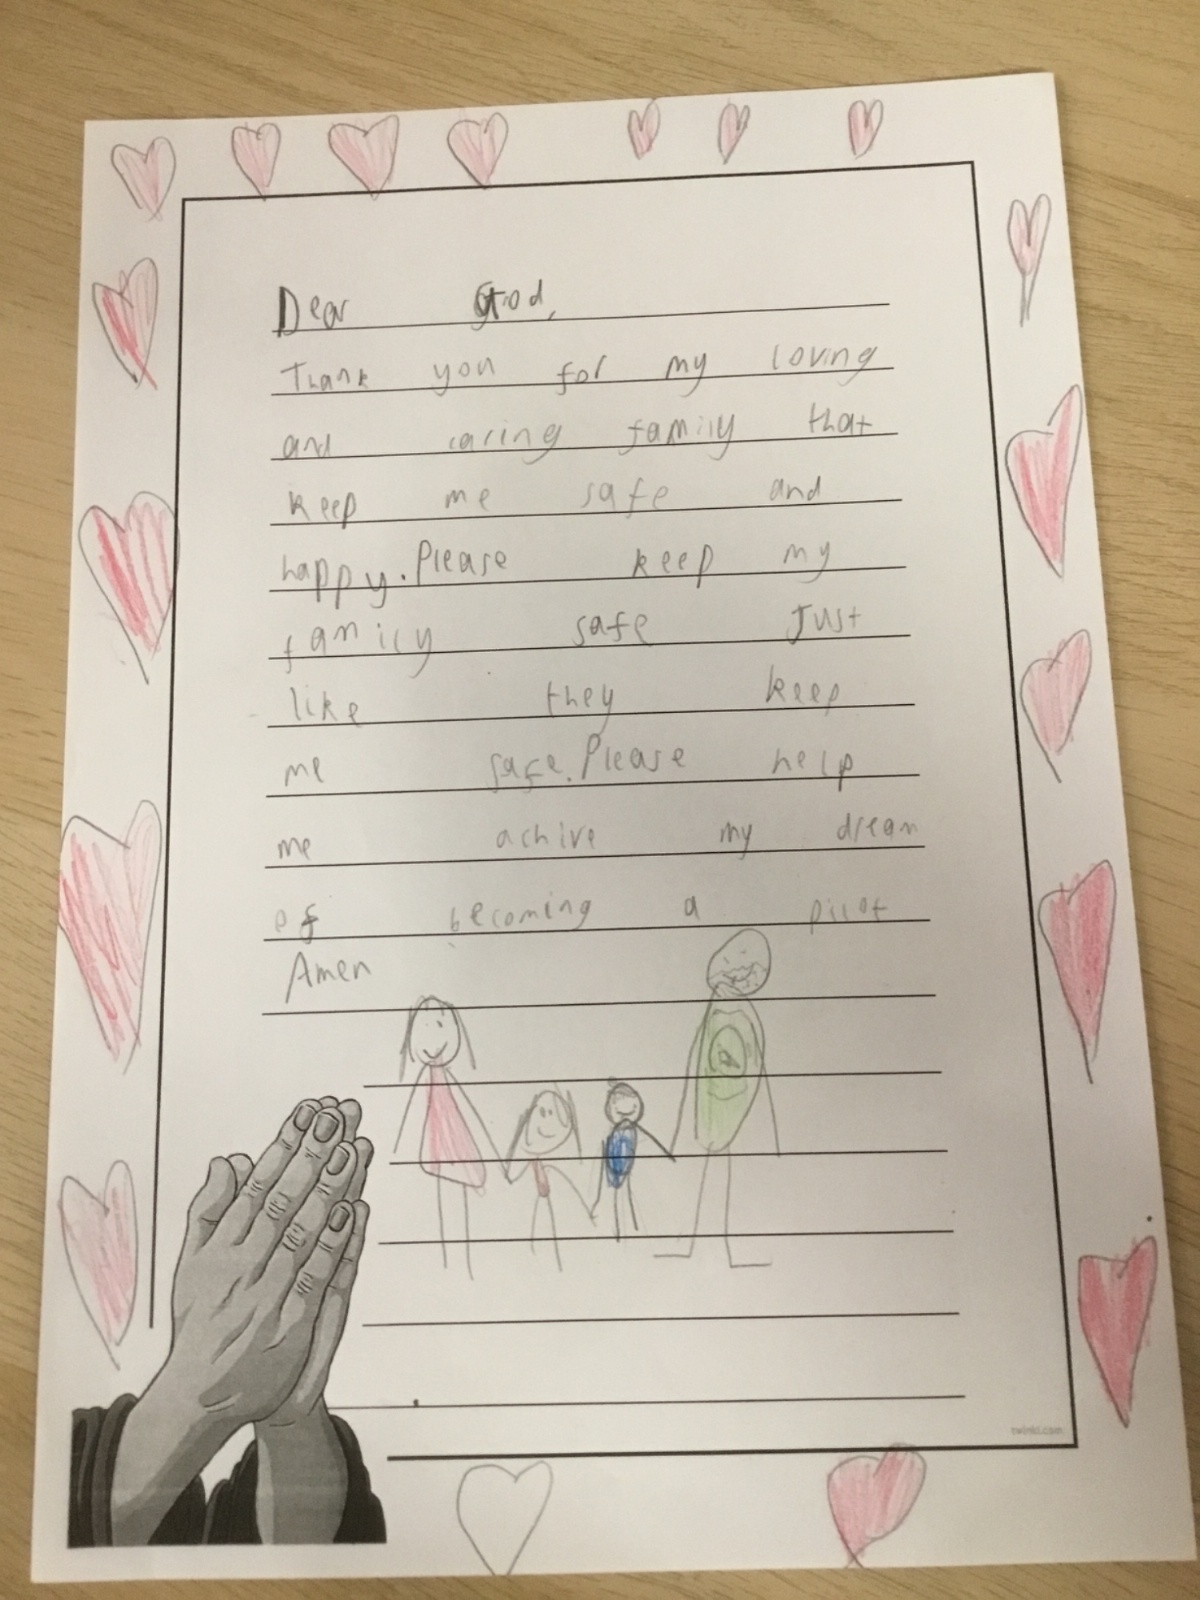 Dear God,
Thank you for my loving
and caring family that
keep me safe and
happy. Please keep my
family safe Just
like they keep
me safe. Please help
me achive my dream
of becoming a pilot
Amen
twinkl.com